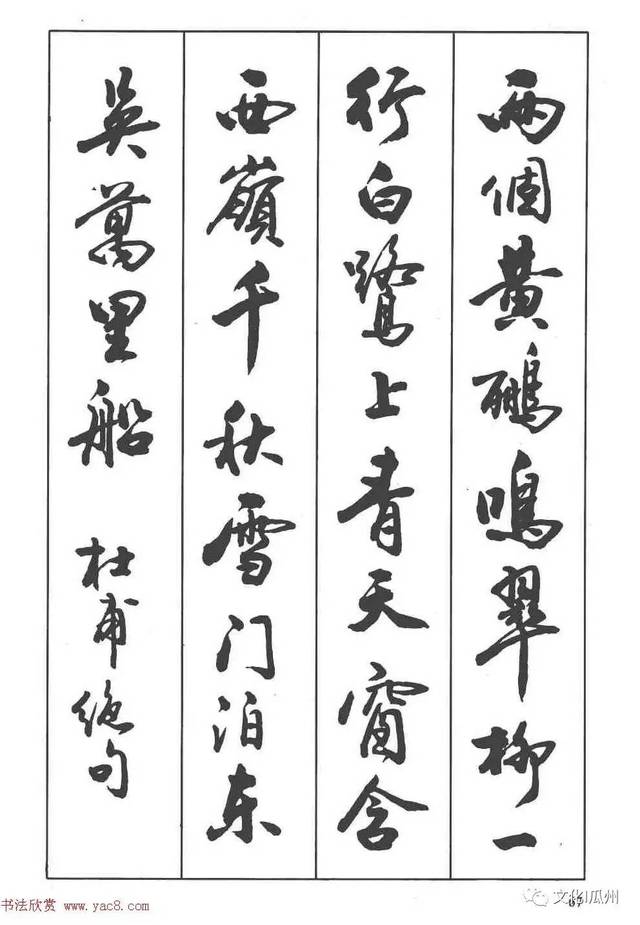 兩個黃鸝鳴翠柳一
行白鷺上青天窗含
西嶺千秋雪门泊东
吴萬里船 杜甫绝句
书法欣赏 www.yac8.com
文化瓜州
67